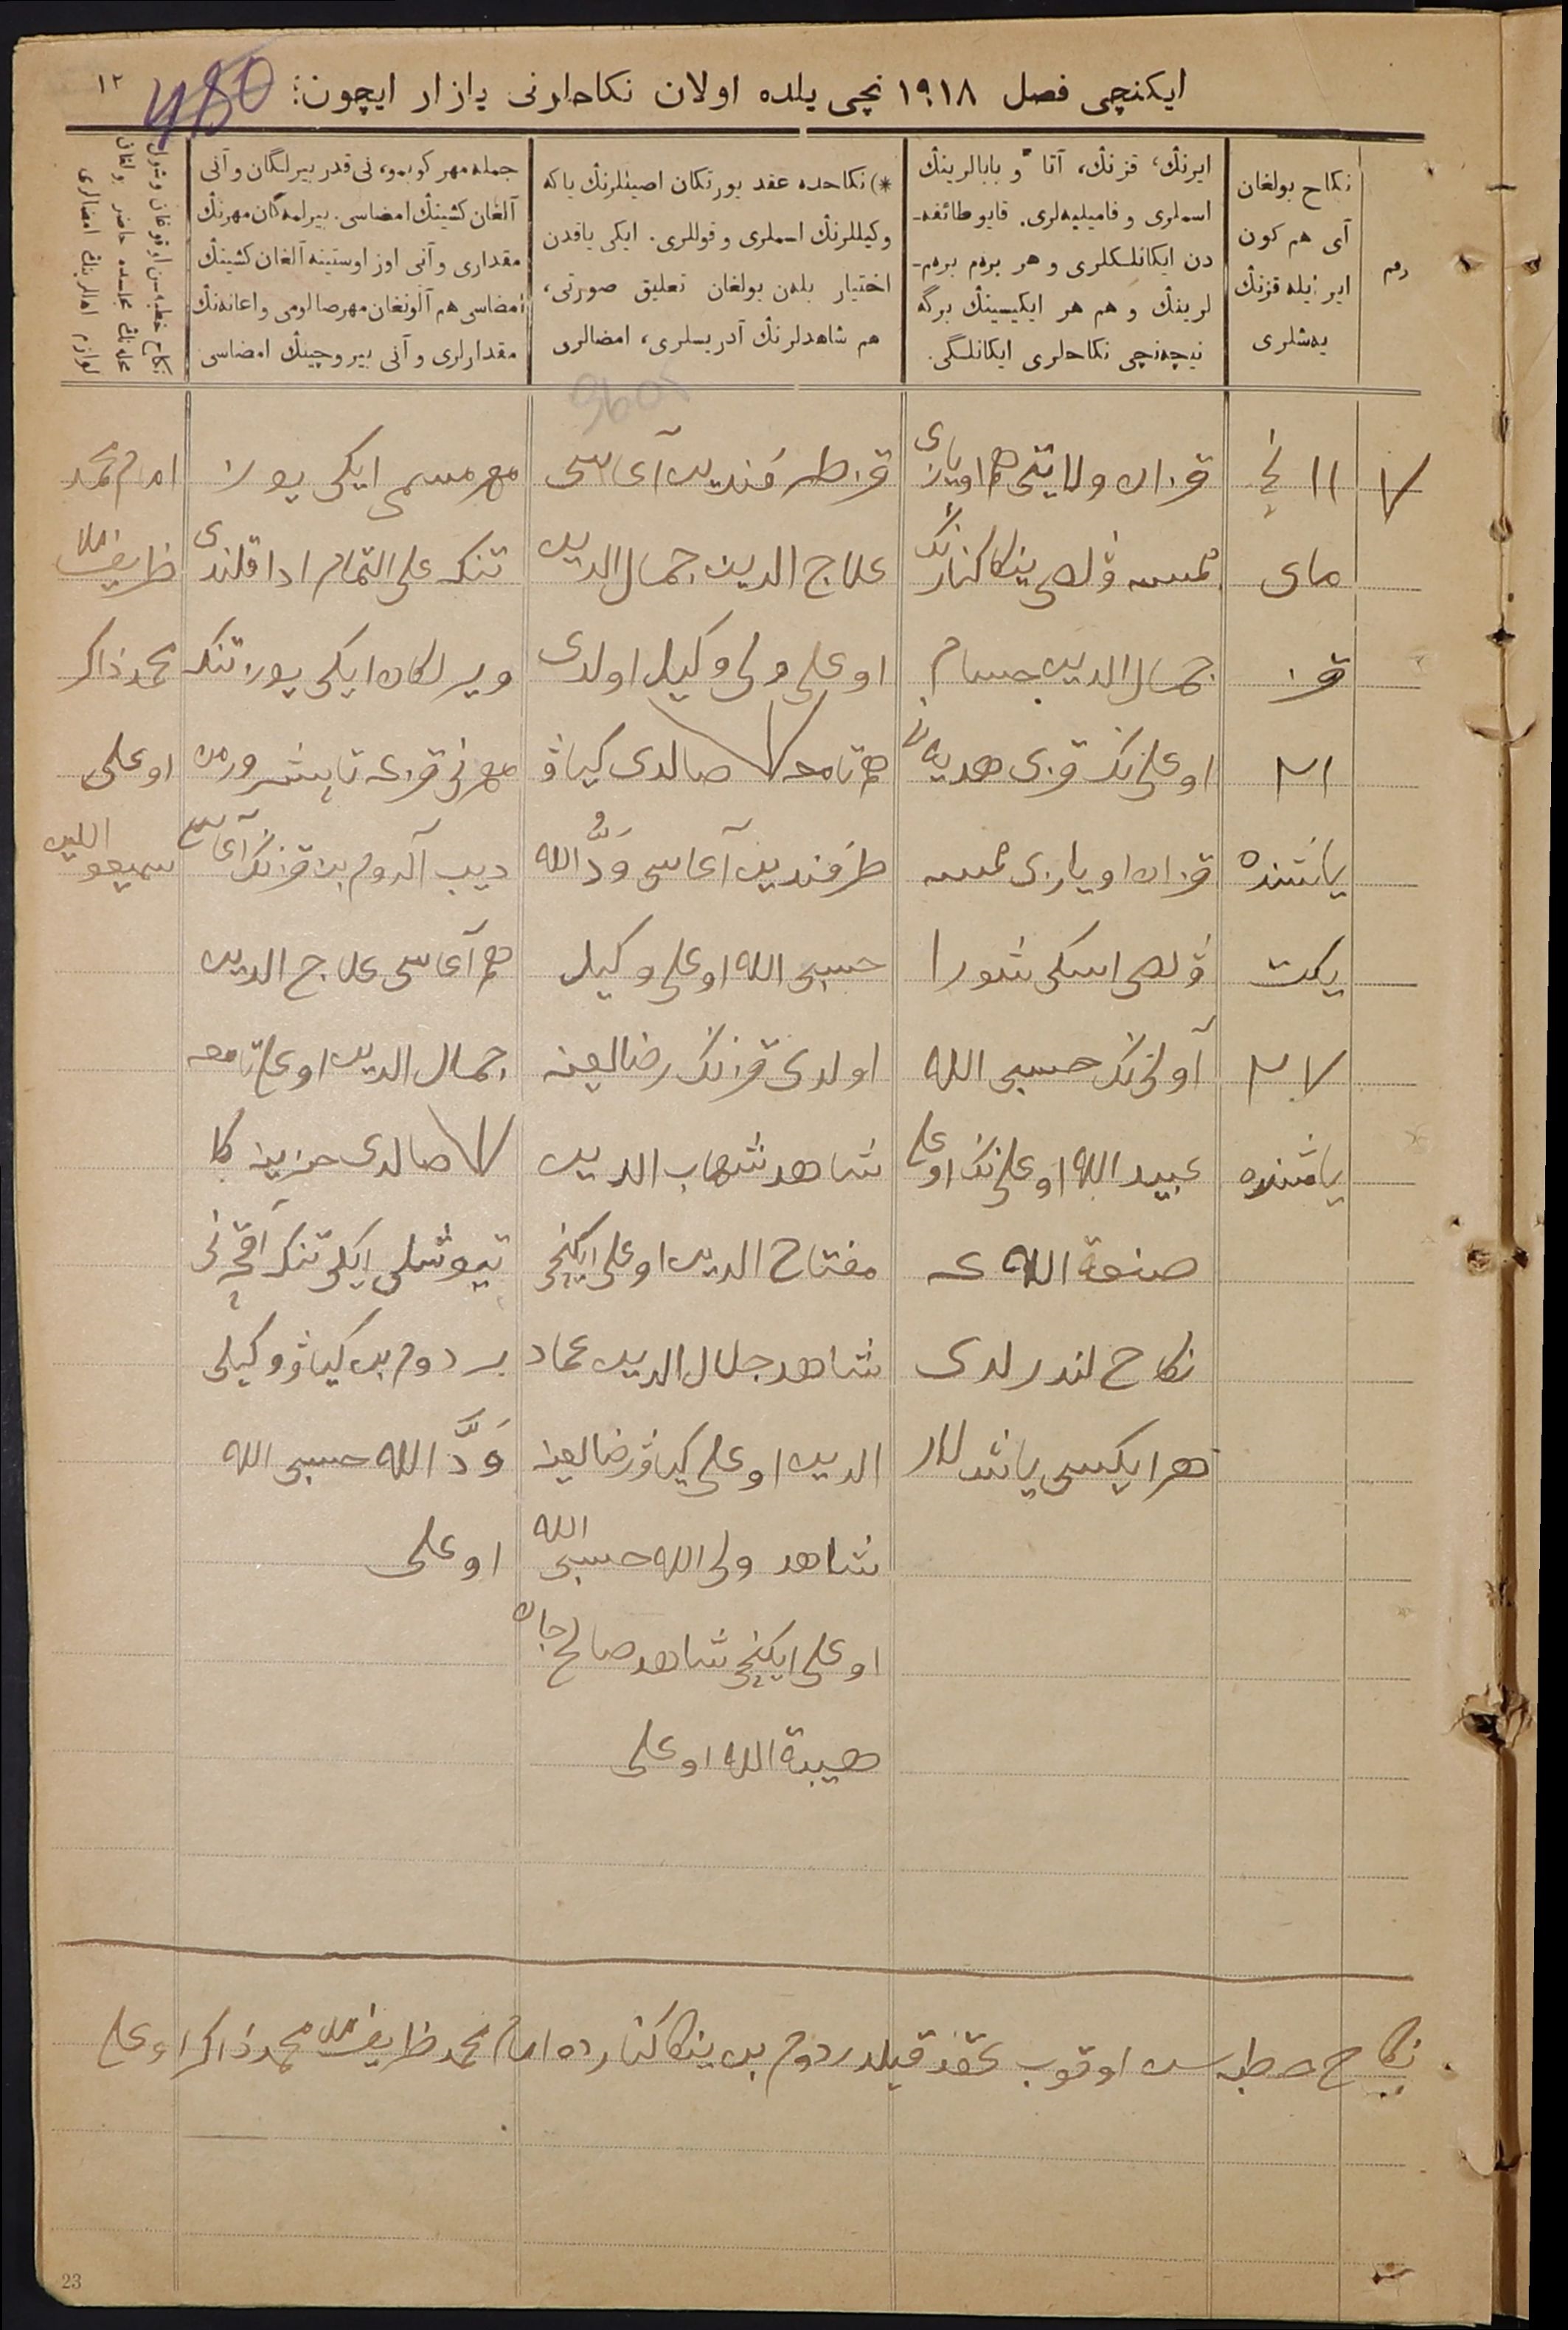 ایکنچی فصل ۱۹۱۸ نچی یلده اولان نکاحلرنی یازار ایچون:
۱۲
480
رقم
نکاح بولغان
آی هم کون
ایر ایله قزنڭ
یه‌شلری
ایرنڭ، قزنڭ، آتا و بابالرینڭ
اسملری و فامیلیه‌لری. قایو طائفه‌-
دن ایکانلکلری و هر برەم برەم-
لرینڭ و هم هر ایکیسینڭ برگه
نیچه‌نچی نکاحلری ایکانلگی.
*) نکاحده عقد یورتکان اصیللرنڭ یا که
وکیللرنڭ اسملری و قوللری. ایکی یاقدن
اختیار بلەن بولغان تعلیق صورتی،
هم شاهدلرنڭ آدریسلری، امضالری
جمله مهر کوبمو، نی قدر بیرلگان و آنی
آلغان کشینڭ امضاسی. بیرلمه‌گان مهرنڭ
مقداری و آنی اوز اوستینه آلغان کشینڭ
امضاسی هم آلونغان مهر صالومی و اعانه‌نڭ
مقدارلری و آنی بیروچینڭ امضاسی
نکاح خطبه‌سن اوقوغان و شول
محله‌نڭ مجلسده حاضر بولغان
لوازم اهالرینڭ امضالری
7
11 نچی
مای
قز
21
یاشنده
یکت
27
یاشنده
قزان ولایتی هم اویازی
ولصی ینکا کنارنک
جمال الدین حسام
اوغلی نک قزی هدیه نی
قزان اویازی
ولصی اسکی شورا
آولی نک حسبی الله
عبید الله اوغلی نک اوغلی
صنعة الله غه
نکاح لندرلدی
هر ایکیسی یاشلار
قز طرفندین آغاسی
علاج الدین جمال الدین
اوغلی ولی وکیل اولدی
هم تامغه صالدی کیاو
طرفندین آغاسی ودّ الله
حسبی الله اوغلی وکیل
اولدی قزنک رضالیغینه
شاهد شهاب الدین
مفتاح الدین اوغلی ایکنچی
شاهد جلال الدین عماد
الدین اوغلی کیاو رضالیغینه
شاهد ولی الله حسبی الله
اوغلی ایکنچی شاهد صالح جان
هیبة الله اوغلی
مهر مسمی ایکی یوز
تنکه علی التمام ادا قلندی
ویرلکان ایکی یوز تنکه
مهرنی قزغه تابشرورمن
دیب آلدوم بن قزنک آغاسی
هم آغاسی علاج الدین
جمال الدین اوغلی تامغه
صالدی خزینه کا
تیوشلی ایکی تنکه آقچه نی
بردوم بن کیاو وکیلی
ودّ الله حسبی الله
اوغلی
امام محمد
ظریف ملا
محمد ذاکر
اوغلی
سمیعو اللین
نکاح خطبه سن اوقوب عقد قیلدردوم بن ینکا کنارده امام محمد ظریف ملا محمد ذاکر اوغلی
23